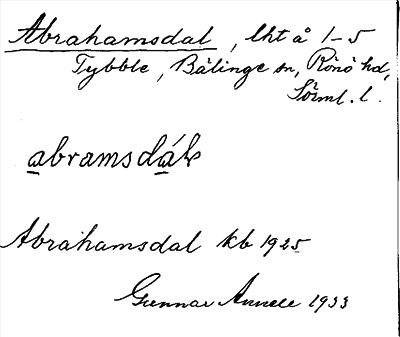 Abrahamsdal, lht å 1–5
Tybble, Bälinge sn, Rönö hd,
Sörml. l.
abramsdál
Abrahamsdal kb 1925
Gunnar 1933